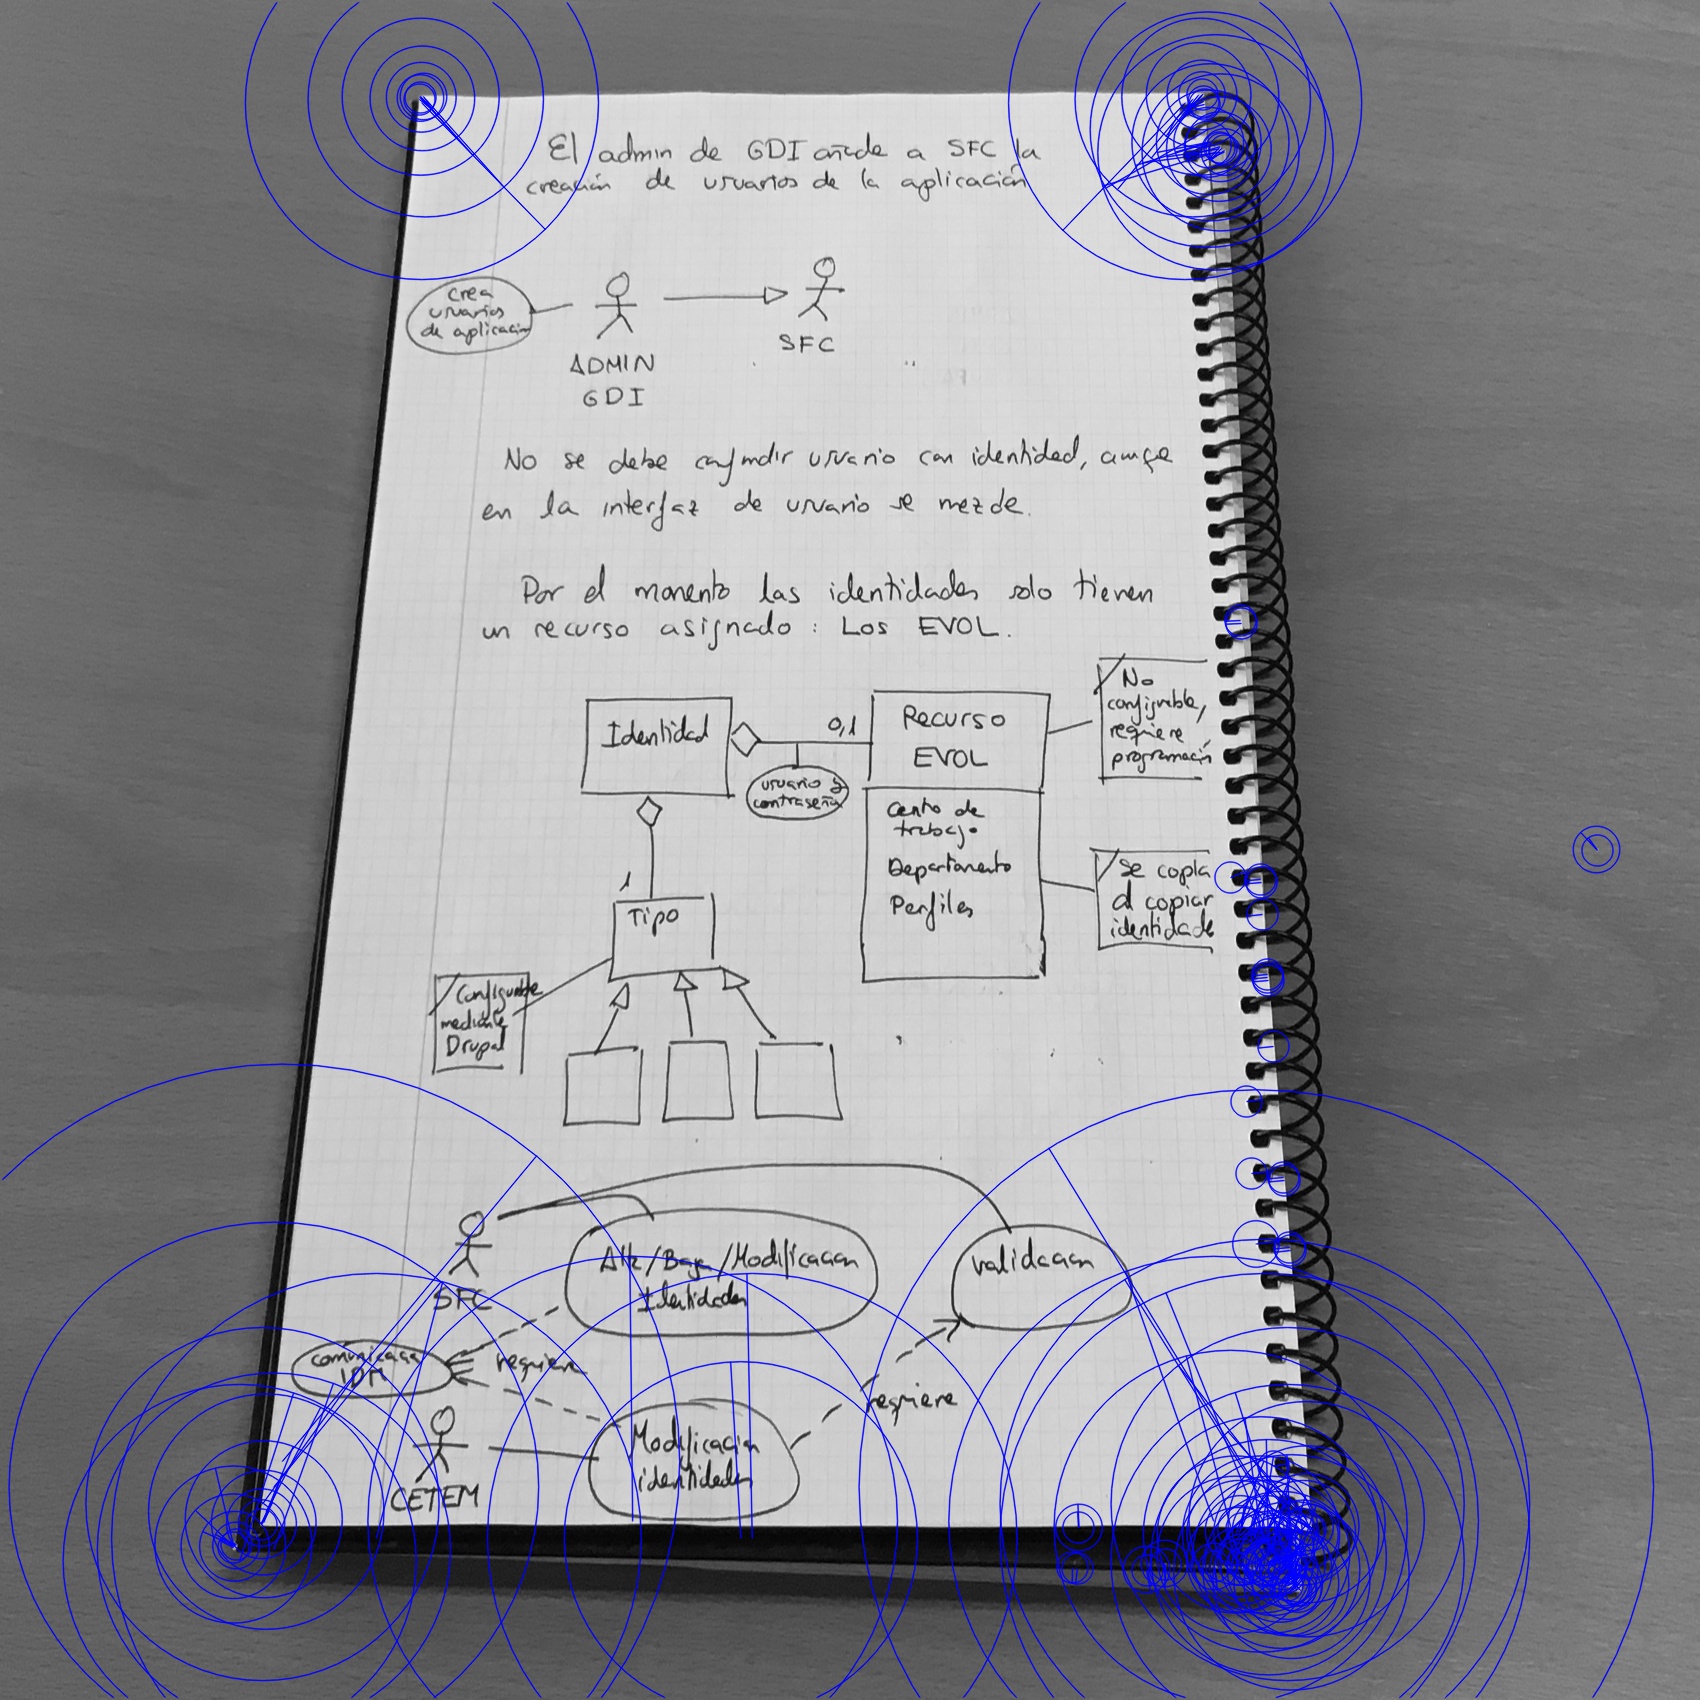 El admin de GDI añade a SFC la
creación de usuarios de la aplicación
crea
usuarios
de aplicación
ADMIN
GDI
SFC
No se debe confundir usuario con identidad, aunque
en la interfaz de usuario se mezcle.
Por el momento las identidades solo tienen
un recurso asignado: Los EVOL.
Identidad
0,1
Recurso
EVOL
No
configurable,
requiere
programación
usuario y
contraseña
Centro de
trabajo
Departamento
Perfiles
Se copia
al copiar
identidade
1
Tipo
Configurable
mediante
Drupal
SFC
Alta/Baja/Modificación
Identidades
validación
comunicación
IDM
requiere
requiere
CETEM
Modificación
identidades